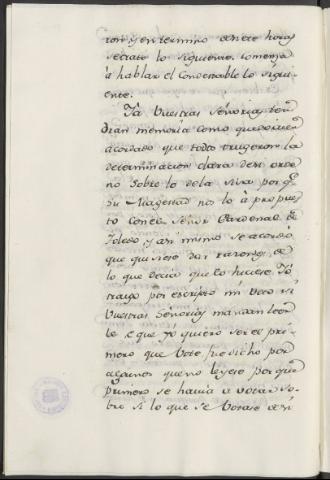 ron, y en termino de siete horas
se trato lo siguiente. comenzo
à hablar el Condestable lo sigui-
ente.
Ya Vuestras Señorias ten-
dran memoria como quedo ayer
acordado que todos trugeron la
determinacion clara de si ò de
no sobre lo de la sisa por qe.
Su Magestad no lo à propues
to con el Señor Cardenal de
Toledo, y asi mismo se acordò
que quisiese dar razones de
lo que decia que lo hiciese. Yo
traygo por escripto mi voto si
Vuestras Señorias mandan leer-
le, que yo quiero ser el pri-
mero que vote fue dicho por
algunos que no leyese por que
primero se havia de votar so-
bre si lo que se votase de si